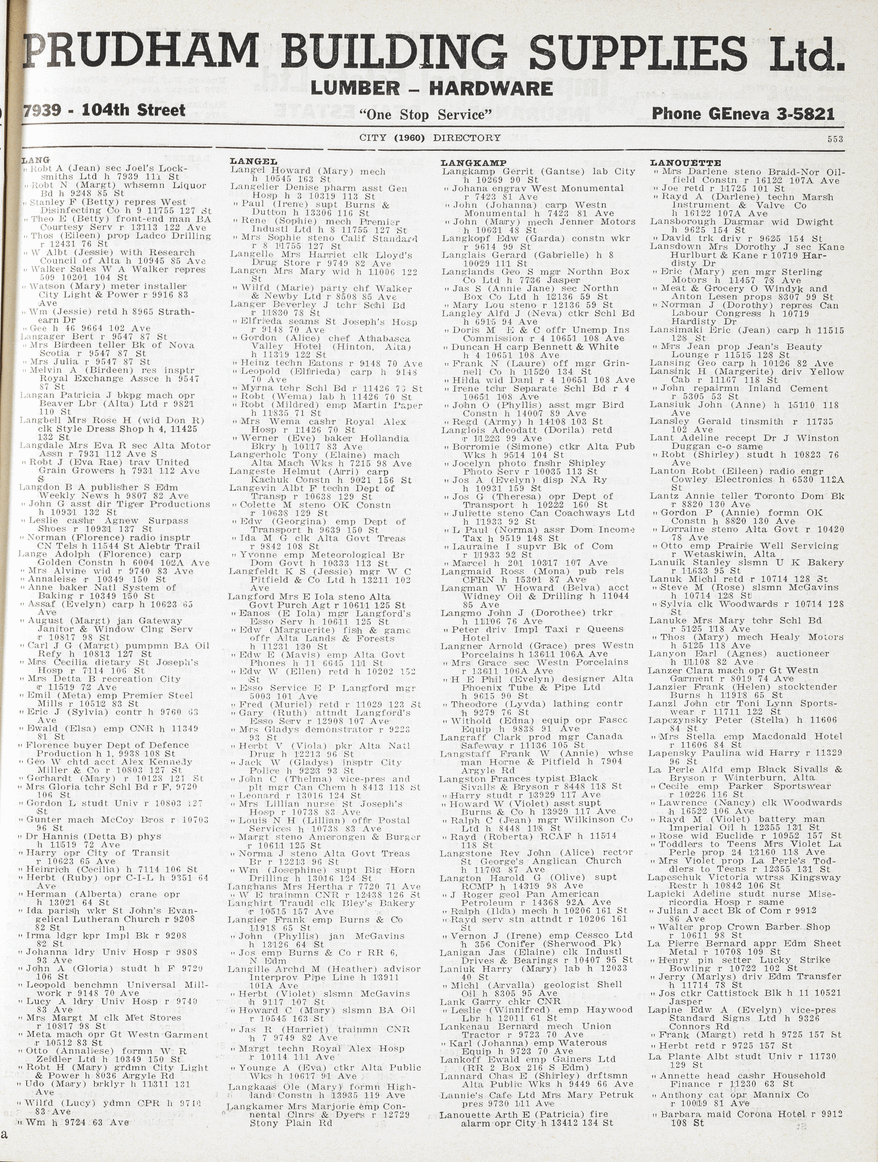 PRUDHAM BUILDING SUPPLIES Ltd.
LUMBER – HARDWARE
7939 - 104th Street "One Stop Service" Phone GEneva 3-5821
CITY (1960) DIRECTORY 553
LANG
" Robt A (Jean) sec Joel's Lock-
smiths Ltd h 7939 111 St
" Robt N (Margt) whsemn Liquor
Bd h 9248 85 St
" Stanley F (Betty) repres West
Disinfecting Co h 9 11755 127 St
" Theo E (Betty) front-end man BA
Courtesy Serv r 13113 122 Ave
" Thos (Eileen) prop Ladco Drilling
r 12431 76 St
" W Albt (Jessie) with Research
Council of Alta h 10945 85 Ave
" Walker Sales W A Walker repres
509 10201 104 St
" Watson (Mary) meter installer
City Light & Power r 9916 83
Ave
" Wm (Jessie) retd h 8965 Strath-
earn Dr
" Gee h 46 9664 102 Ave
Langager Bert r 9547 87 St
" Mrs Birdeen teller Bk of Nova
Scotia r 9547 87 St
" Mrs Julia r 9547 87 St
" Melvin A (Birdeen) res insptr
Royal Exchange Assce h 9547
87 St
Langan Patricia J bkpg mach opr
Beaver Lbr (Alta) Ltd r 9821
110 St
Langbell Mrs Rose H (wid Don R)
clk Style Dress Shop h 4, 11425
132 St
Langdale Mrs Eva R sec Alta Motor
Assn r 7931 112 Ave S
" Robt J (Eva Rae) trav United
Grain Growers h 7931 112 Ave
S
Langdon B A publisher S Edm
Weekly News h 9807 82 Ave
" John G asst dir Tiger Productions
h 10931 132 St
" Leslie cashr Agnew Surpass
Shoes r 10931 137 St
" Norman (Florence) radio insptr
CN Tels h 11544 St Alebtr Trail
Lange Adolph (Florence) carp
Golden Constn h 6004 102A Ave
" Mrs Alvine wid r 9740 83 Ave
" Annaleise r 10349 150 St
" Anne baker Natl System of
Baking r 10349 150 St
" Assaf (Evelyn) carp h 10623 65
Ave
" August (Margt) jan Gateway
Janitor & Window Clng Serv
r 10817 98 St
" Carl J G (Margt) pumpmn BA Oil
Refy h 10813 127 St
" Mrs Cecilia dietary St Joseph's
Hosp r 7114 106 St
" Mrs Detta B recreation City
r 11519 72 Ave
" Emil (Meta) emp Premier Steel
Mills r 10512 83 St
" Eric J (Sylvia) contr h 9760 63
Ave
" Ewald (Elsa) emp CNR h 11349
81 St
" Florence buyer Dept of Defence
Production h 1, 9938 108 St
" Geo W chtd acct Alex Kennedy
Miller & Co r 10803 127 St
" Gerhardt (Mary) r 10123 121 St
" Mrs Gloria tchr Schl Bd r F, 9720
106 St
" Gordon L studt Univ r 10803 127
St
" Gunter mach McCoy Bros r 10703
96 St
" Dr Hannis (Detta B) phys
h 11519 72 Ave
" Harry opr City of Transit
r 10623 65 Ave
" Heinrich (Cecilia) h 7114 106 St
" Herbt (Ruby) opr C-I-L h 9351 64
Ave
" Herman (Alberta) crane opr
h 13021 64 St
" Ida parish wkr St John's Evan-
gelical Lutheran Church r 9208
82 St
" Irma ldgr kpr Impl Bk r 9208
82 St
" Johanna ldry Univ Hosp r 9808
93 Ave
" John A (Gloria) studt h F 9720
106 St
" Leopold benchmn Universal Mill-
work r 9148 70 Ave
" Lucy A ldry Univ Hosp r 9740
83 Ave
" Mrs Margt M clk Met Stores
r 10817 98 St
" Meta mach opr Gt Westn Garment
r 10512 83 St
" Otto (Annaliese) formn W R
Zeidler Ltd h 10349 150 St
" Robt H (Mary) grdmn City Light
& Power h 8036 Argyle Rd
" Udo (Mary) brklyr h 11311 131
Ave
" Wilfd (Lucy) ydmn CPR h 9740
83 Ave
" Wm h 9724 63 Ave
LANGEL
Langel Howard (Mary) mech
h 10545 163 St
Langelier Denise pharm asst Gen
Hosp h 3 10319 113 St
" Paul (Irene) supt Burns &
Dutton h 13306 116 St
" Rene (Sophie) mech Premier
Industl Ltd h 8 11755 127 St
" Mrs Sophie steno Calif Standard
r 8 11755 127 St
Langelle Mrs Harriet clk Lloyd's
Drug Store r 9749 82 Ave
Langen Mrs Mary wid h 11006 122
St
" Wilfd (Marie) party chf Walker
& Newby Ltd r 8508 85 Ave
Langer Beverley J tchr Schl Bd
r 11830 78 St
" Elfrieda seams St Joseph's Hosp
r 9148 70 Ave
" Gordon (Alice) chef Athabasca
Valley Hotel (Hinton, Alta)
h 11319 122 St
" Heinz techn Eatons r 9148 70 Ave
" Leopold (Elfrieda) carp h 9148
70 Ave
" Myrna tchr Schl Bd r 11426 70 St
" Robt (Wema) lab h 11426 70 St
" Robt (Mildred) emp Martin Paper
h 11835 71 St
" Mrs Wema cashr Royal Alex
Hosp r 11426 70 St
" Werner (Eve) baker Hollandia
Bkry h 10117 83 Ave
Langerholc Tony (Elaine) mach
Alta Mach Wks h 7215 98 Ave
Langeste Helmut (Arri) carp
Kachuk Constn h 9021 156 St
Langevin Albt F techn Dept of
Transp r 10638 129 St
" Colette M steno OK Constn
r 10638 129 St
" Edw (Georgina) emp Dept of
Transport h 9639 150 St
" Ida M G clk Alta Govt Treas
r 9842 108 St
" Yvonne emp Meteorological Br
Dom Govt h 10333 113 St
Langfeldt K S (Jessie) mgr W C
Pitfield & Co Ltd h 13211 102
Ave
Langford Mrs E Iola steno Alta
Govt Purch Agt r 10611 125 St
" Eanos (E Iola) mgr Langford's
Esso Serv h 10611 125 St
" Edw (Marguerite) fish & game
offr Alta Lands & Forests
h 11231 130 St
" Edw E (Mavis) emp Alta Govt
Phones h 11 6645 111 St
" Edw W (Ellen) retd h 10202 152
St
" Esso Service E P Langford mgr
5003 101 Ave
" Fred (Muriel) retd r 11029 123 St
" Gary (Ruth) attndt Langford's
Esso Serv r 12908 107 Ave
" Mrs Gladys demonstrator r 9223
93 St
" Herbt V (Viola) pkr Alta Natl
Drug h 12213 96 St
" Jack W (Gladys) insptr City
Police h 9223 93 St
" John C (Thelma) vice-pres and
plt mgr Can Chem h 8413 118 St
" Leonard r 13016 124 St
" Mrs Lillian nurse St Joseph's
Hosp r 10738 83 Ave
" Louis N H (Lillian) offr Postal
Services h 10738 83 Ave
" Margt steno Amerongen & Burger
r 10611 125 St
" Norma J steno Alta Govt Treas
Br r 12213 96 St
" Wm (Josephine) supt Big Horn
Drilling h 13016 124 St
Langhans Mrs Hertha r 7720 71 Ave
" W R trainmn CNR r 12438 126 St
Langhirt Traudl clk Bley's Bakery
r 10515 157 Ave
Langier Frank emp Burns & Co
11918 65 St
" John (Phyllis) jan McGavins
h 13126 64 St
" Jos emp Burns & Co r RR 6,
N Edm
Langille Archd M (Heather) advisor
Interprov Pipe Line h 13911
101A Ave
" Herbt (Violet) slsmn McGavins
h 9117 107 St
" Howard C (Mary) slsmn BA Oil
r 10545 163 St
" Jas R (Harriet) trainmn CNR
h 7 9749 82 Ave
" Margt techn Royal Alex Hosp
r 10114 111 Ave
" Younge A (Eva) ctkr Alta Public
Wks h 10617 91 Ave
Langkaas Ole (Mary) formn High-
land Constn h 13935 119 Ave
Langkamer Mrs Marjorie emp Con-
nental Clnrs & Dyers r 12729
Stony Plain Rd
LANGKAMP
Langkamp Gerrit (Gantse) lab City
h 10269 90 St
" Johana engrav West Monumental
r 7423 81 Ave
" John (Johanna) carp Westn
Monumental h 7423 81 Ave
" John (Mary) mech Jenner Motors
h 10631 48 St
Langkopf Edw (Garda) constn wkr
r 9614 99 St
Langlais Gerard (Gabrielle) h 8
10029 111 St
Langlands Geo S mgr Northn Box
Co Ltd h 7736 Jasper
" Jas S (Annie Jane) sec Northn
Box Co Ltd h 12136 59 St
" Mary Lou steno r 12136 59 St
Langley Alfd J (Neva) ctkr Schl Bd
h 6915 94 Ave
" Doris M E & C offr Unemp Ins
Commission r 4 10651 108 Ave
" Duncan H carp Bennett & White
h 4 10651 108 Ave
" Frank N (Laure) off mgr Grin-
nell Co h 11520 134 St
" Hilda wid Danl r 4 10651 108 Ave
" Irene tchr Separate Schl Bd r 4
10651 108 Ave
" John O (Phyllis) asst mgr Bird
Constn h 14007 89 Ave
" Regd (Army) h 14108 103 St
Langlois Adeodatt (Dorila) retd
r 11223 99 Ave
" Borromie (Simone) ctkr Alta Pub
Wks h 9514 104 St
" Jocelyn photo fnshr Shipley
Photo Serv r 10035 113 St
" Jos A (Evelyn) disp NA Ry
h 10931 159 St
" Jos G (Theresa) opr Dept of
Transport h 10222 160 St
" Juliette steno Can Coachways Ltd
h 11933 92 St
" L Paul (Norma) assr Dom Income
Tax h 9519 148 St
" Lauraine I supvr Bk of Com
r 11933 92 St
" Marcel h 201 10317 107 Ave
Langmaid Ross (Mona) pub rels
CFRN h 15301 87 Ave
Langman W Howard (Belva) acct
Widney Oil & Drilling h 11044
85 Ave
Langmo John J (Dorothee) trkr
h 11106 76 Ave
" Peter driv Impl Taxi r Queens
Hotel
Langner Arnold (Grace) pres Westn
Porcelains h 13611 106A Ave
" Mrs Grace sec Westn Porcelains
r 13611 106A Ave
" H E Phil (Evelyn) designer Alta
Phoenix Tube & Pipe Ltd
h 9615 90 St
" Theodore (Lyvda) lathing contr
h 9279 76 St
" Withold (Edna) equip opr Fascc
Equip h 9838 91 Ave
Langraff Clark prod mgr Canada
Safeway r 11136 105 St
Langstaff Frank W (Annie) whse
man Horne & Pitfield h 7904
Argyle Rd
Langston Frances typist Black
Sivalls & Bryson r 8448 118 St
" Harry studt r 13929 117 Ave
" Howard W (Violet) asst supt
Burns & Co h 13929 117 Ave
" Ralph C (Jean) mgr Wilkinson Co
Ltd h 8448 118 St
" Rayd (Roberta) RCAF h 11514
118 St
Langstone Rev John (Alice) rector
St George's Anglican Church
h 11703 87 Ave
Langton Harold G (Olive) supt
RCMP h 14319 98 Ave
" J Roger geol Pan American
Petroleum r 14368 92A Ave
" Ralph (Ilda) mech h 10206 161 St
" Rayd serv stn attndt r 10206 161
St
" Vernon J (Irene) emp Cessco Ltd
h 356 Conifer (Sherwood Pk)
Lanigan Jas (Elaine) clk Industl
Drives & Bearings r 10407 95 St
Laniuk Harry (Mary) lab h 12033
40 St
" Michl (Arvalla) geologist Shell
Oil h 8305 95 Ave
Lank Garry chkr CNR
" Leslie (Winnifred) emp Haywood
Lbr h 12011 61 St
Lankenau Bernard mech Union
Tractor r 9723 70 Ave
" Karl (Johanna) emp Waterous
Equip h 9723 70 Ave
Lankoff Ewald emp Gainers Ltd
(RR 2 Box 216 S Edm)
Lannard Chas E (Shirley) drftsmn
Alta Public Wks h 9449 66 Ave
Lannie's Cafe Ltd Mrs Mary Petruk
pres 9730 111 Ave
Lanouette Arth E (Patricia) fire
alarm opr City h 13412 134 St
LANOUETTE
" Mrs Darlene steno Braid-Nor Oil-
field Constn r 16122 107A Ave
" Joe retd r 11725 101 St
" Rayd A (Darlene) techn Marsh
Instrument & Valve Co
h 16122 107A Ave
Lansborough Dagmar wid Dwight
h 9625 154 St
" David trk driv r 9625 154 St
Lansdown Mrs Dorothy J sec Kane
Hurlburt & Kane r 10719 Har-
disty Dr
" Eric (Mary) gen mgr Sterling
Motors h 11457 78 Ave
" Meat & Grocery O Windyk and
Anton Lesen props 8307 99 St
" Norman J (Dorothy) repres Can
Labour Congress h 10719
Hardisty Dr
Lansimaki Eric (Jean) carp h 11515
128 St
" Mrs Jean prop Jean's Beauty
Lounge r 11515 128 St
Lansing Geo carp h 10126 82 Ave
Lansink H (Margerite) driv Yellow
Cab r 11167 118 St
" John repairmn Inland Cement
r 5305 53 St
Lansiuk John (Anne) h 15110 118
Ave
Lansley Gerald tinsmith r 11735
102 Ave
Lant Adeline recept Dr J Winston
Duggan c-o same
" Robt (Shirley) studt h 10823 76
Ave
Lanton Robt (Eileen) radio engr
Cowley Electronics h 6530 112A
St
Lantz Annie teller Toronto Dom Bk
r 8820 130 Ave
" Gordon P (Annie) formn OK
Constn h 8820 130 Ave
" Lorraine steno Alta Govt r 10420
78 Ave
" Otto emp Prairie Well Servicing
r Wetaskiwin, Alta
Lanuik Stanley slsmn U K Bakery
r 11633 95 St
Lanuk Michl retd r 10714 128 St
" Steve M (Rose) slsmn McGavins
h 10714 128 St
" Sylvia clk Woodwards r 10714 128
St
Lanuke Mrs Mary tchr Schl Bd
r 5125 118 Ave
" Thos (Mary) mech Healy Motors
h 5125 118 Ave
Lanyon Earl (Agnes) auctioneer
h 11108 82 Ave
Lanzer Clara mach opr Gt Westn
Garment r 8019 74 Ave
Lanzier Frank (Helen) stocktender
Burns h 11918 65 St
Lanzl John ctr Toni Lynn Sports-
wear r 11711 122 St
Lapczynsky Peter (Stella) h 11606
84 St
" Mrs Stella emp Macdonald Hotel
r 11606 84 St
Lapensky Paulina wid Harry r 11329
96 St
La Perle Alfd emp Black Sivalls &
Bryson r Winterburn, Alta
" Cecile emp Parker Sportswear
r 10226 116 St
" Lawrence (Nancy) clk Woodwards
h 16522 106 Ave
" Rayd M (Violet) battery man
Imperial Oil h 12355 131 St
" Rose wid Euclide r 10952 157 St
" Toddlers to Teens Mrs Violet La
Perle prop 24 13160 118 Ave
" Mrs Violet prop La Perle's Tod-
dlers to Teens r 12355 131 St
Lapeschuk Victoria wtrss Kingsway
Restr h 10842 106 St
Lapicki Adeline studt nurse Mise-
ricordia Hosp r same
" Julian J acct Bk of Com r 9912
86 Ave
" Walter prop Crown Barber Shop
r 10611 98 St
La Pierre Bernard appr Edm Sheet
Metal r 10708 109 St
" Henry pin setter Lucky Strike
Bowling r 10722 102 St
" Jerry (Marlys) driv Edm Transfer
h 11714 78 St
" Jos ctkr Cattistock Blk h 11 10521
Jasper
Lapine Edw A (Evelyn) vice-pres
Standard Signs Ltd h 9326
Connors Rd
" Frank (Margt) retd h 9725 157 St
" Herbt retd r 9725 157 St
La Plante Albt studt Univ r 11730
129 St
" Annette head cashr Household
Finance r 11230 63 St
" Anthony cat opr Mannix Co
r 10019 81 Ave
" Barbara maid Corona Hotel r 9912
108 St